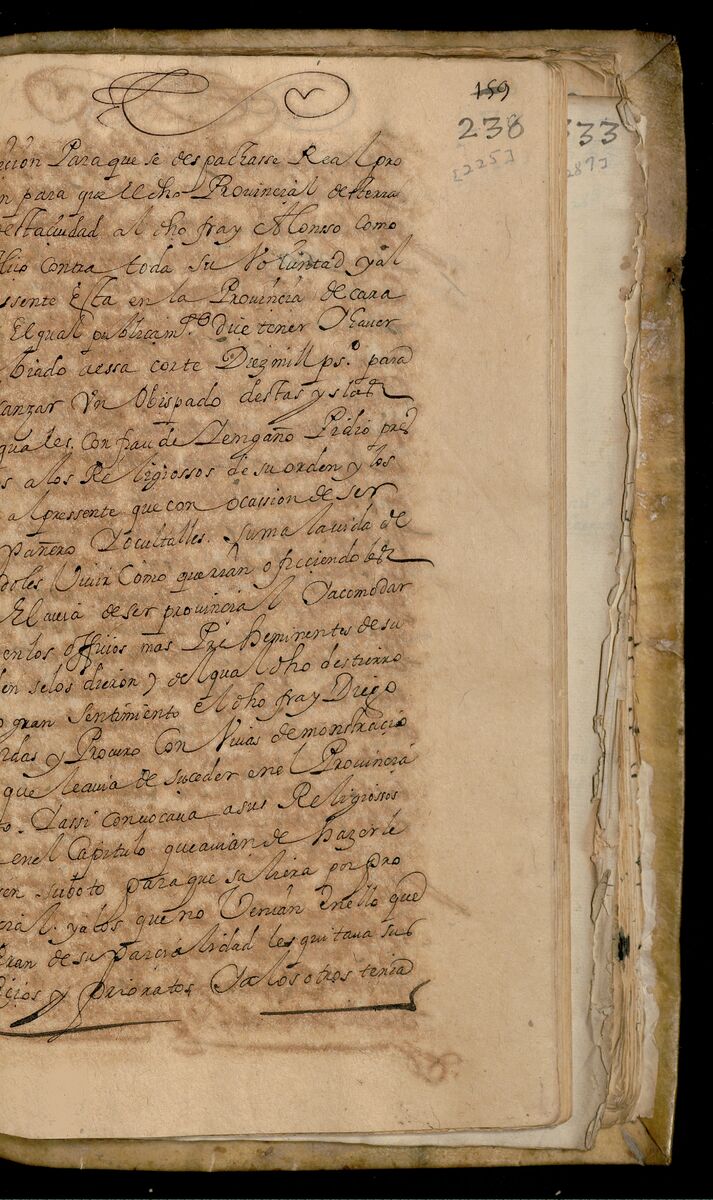 159
238 333
[225] 287]
ición Para que se despachasse Real pro
n para que el dho Provincial desterra
desta ciudad al dho fray Alonso como
hijo contra toda su Voluntad y al
ssente Esta en la Provincia de cara
El qual publicamte dice tener Y haver
biado a essa corte Diez mill ps. para
canzar Un Obispado destas yslas
quales con fraude Y engaño Pidio pres
os a los Religiossos de su orden y los
al pressente que con ocassion de ser
pañero Y ocultalles suma la vida de
doles Vivir Como querian ofreciendoles
El avia de ser provincial Y acomodar
en los officios mas Preheminentes de su
en se los dieron y del qual dho destierro
o gran sentimiento el dho fray Diego
rdas y Procuro Con Vivas demonstracio
que le avia de suceder en el Provincia
to. Y assi convocava a sus Religiossos
en el Capitulo que avian de hazerle
sen su boto para que saliera por Pro
cial. y a los que no Venian en ello que
eran de su parcialidad les quitava sus
icios y prioratos Y a los otros tenia